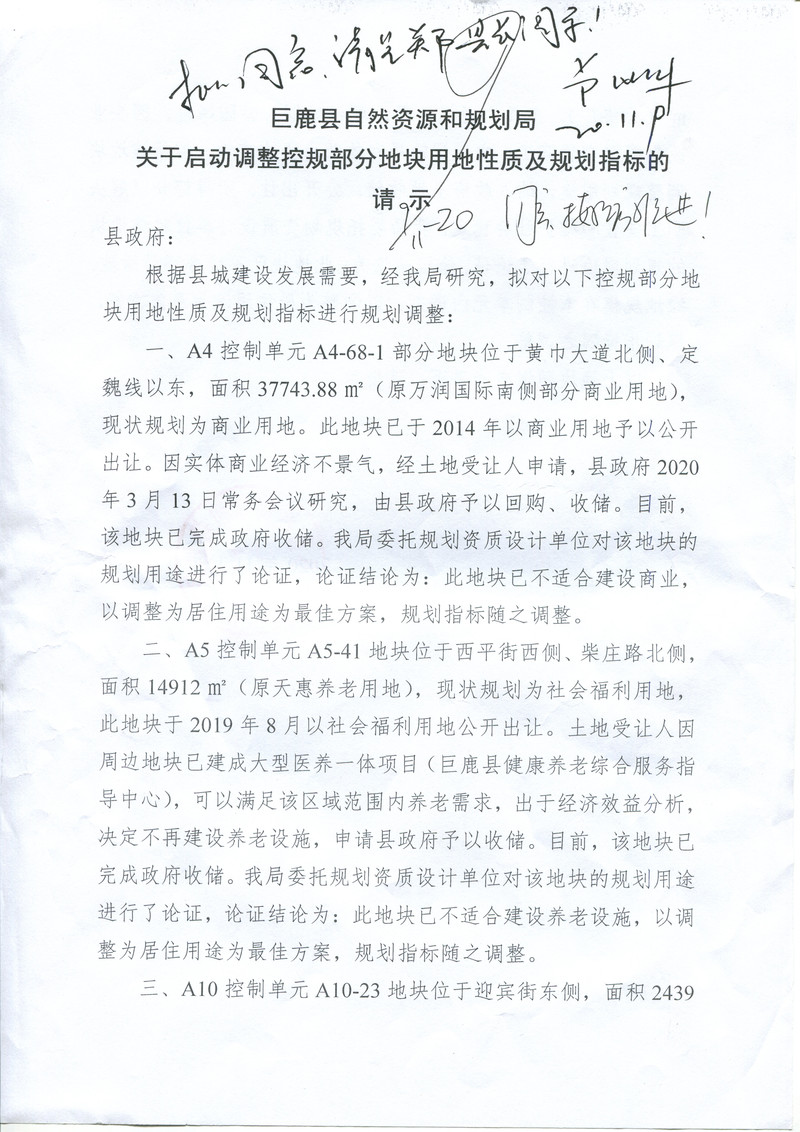 拟同意、请呈郑县长阅示！
20.11.19
巨鹿县自然资源和规划局
关于启动调整控规部分地块用地性质及规划指标的
请 示
11-20 同意,按程序推进！
县政府：
根据县城建设发展需要，经我局研究，拟对以下控规部分地
块用地性质及规划指标进行规划调整：
一、A4 控制单元 A4-68-1 部分地块位于黄巾大道北侧、定
魏线以东，面积 37743.88 ㎡（原万润国际南侧部分商业用地），
现状规划为商业用地。此地块已于 2014 年以商业用地予以公开
出让。因实体商业经济不景气，经土地受让人申请，县政府 2020
年 3 月 13 日常务会议研究，由县政府予以回购、收储。目前，
该地块已完成政府收储。我局委托规划资质设计单位对该地块的
规划用途进行了论证，论证结论为：此地块已不适合建设商业，
以调整为居住用途为最佳方案，规划指标随之调整。
二、A5 控制单元 A5-41 地块位于西平街西侧、柴庄路北侧，
面积 14912 ㎡（原天惠养老用地），现状规划为社会福利用地，
此地块于 2019 年 8 月以社会福利用地公开出让。土地受让人因
周边地块已建成大型医养一体项目（巨鹿县健康养老综合服务指
导中心），可以满足该区域范围内养老需求，出于经济效益分析，
决定不再建设养老设施，申请县政府予以收储。目前，该地块已
完成政府收储。我局委托规划资质设计单位对该地块的规划用途
进行了论证，论证结论为：此地块已不适合建设养老设施，以调
整为居住用途为最佳方案，规划指标随之调整。
三、A10 控制单元 A10-23 地块位于迎宾街东侧，面积 2439